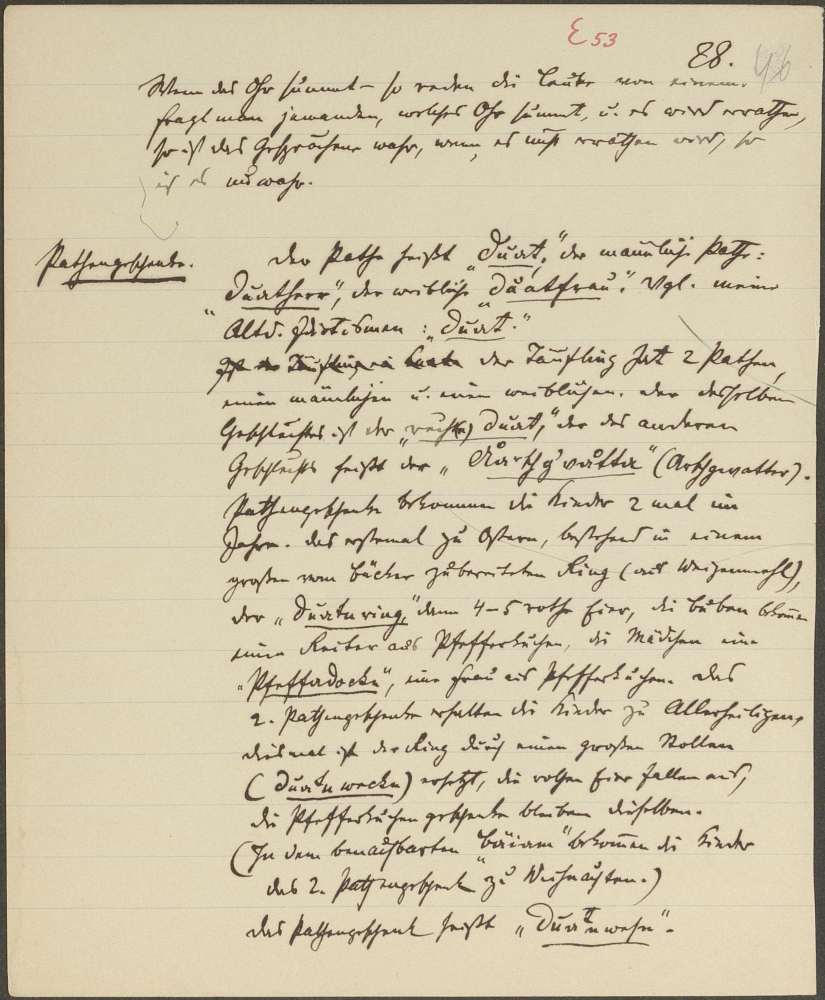 E 53
88. 46
Wenn das Ohr summt – so reden die Leute von einem.
fragt man jemanden, welches Ohr summt, u. es wird errathen,
so ist das Gesprochene wahr, wenn es nicht errathen wird, so
ist es unwahr.
Pathengeschenke. Der Pathe heißt „Duat,“ der männliche Pathe:
„Duatherr“, der weibliche „Duatfrau“. Vgl. meine
„Altd. : „Duat.“
Ist der Täufling ein der Täufling hat 2 Pathen,
einen männlichen u. einen weiblichen. der desselben
Geschlechtes ist der „rechte) Duat,“ der des anderen
Geschlechts heißt der „ (Arthgevatter).
Pathengeschenke bekommen die Kinder 2 mal im
Jahre. das erstemal zu Ostern, bestehend in einem
großen vom Bäcker zubereiteten Ring (aus Weizenmehl),
der „Duatnring,“ dann 4–5 rothe Eier, die Buben bekommen
einen Reiter aus Pfefferkuchen, die Mädchen eine
„Pfeffadocka“, eine Frau aus Pfefferkuchen. Das
2. Pathengeschenke erhalten die Kinder zu Allerheiligen,
diesmal ist der Ring durch einen großen Stollen
(Duatnwecka) ersetzt, die rothen Eier fallen aus,
die Pfefferkuchengeschenke bleiben dieselben.
(In dem benachbarten bekommen die Kinder
das 2. Pathengeschenk zu Weihnachten.)
das Pathengeschenk heißt